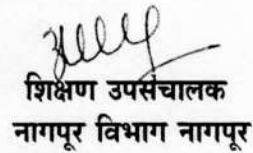 शिक्षण उपसंचालक
नागपूर विभाग नागपूर